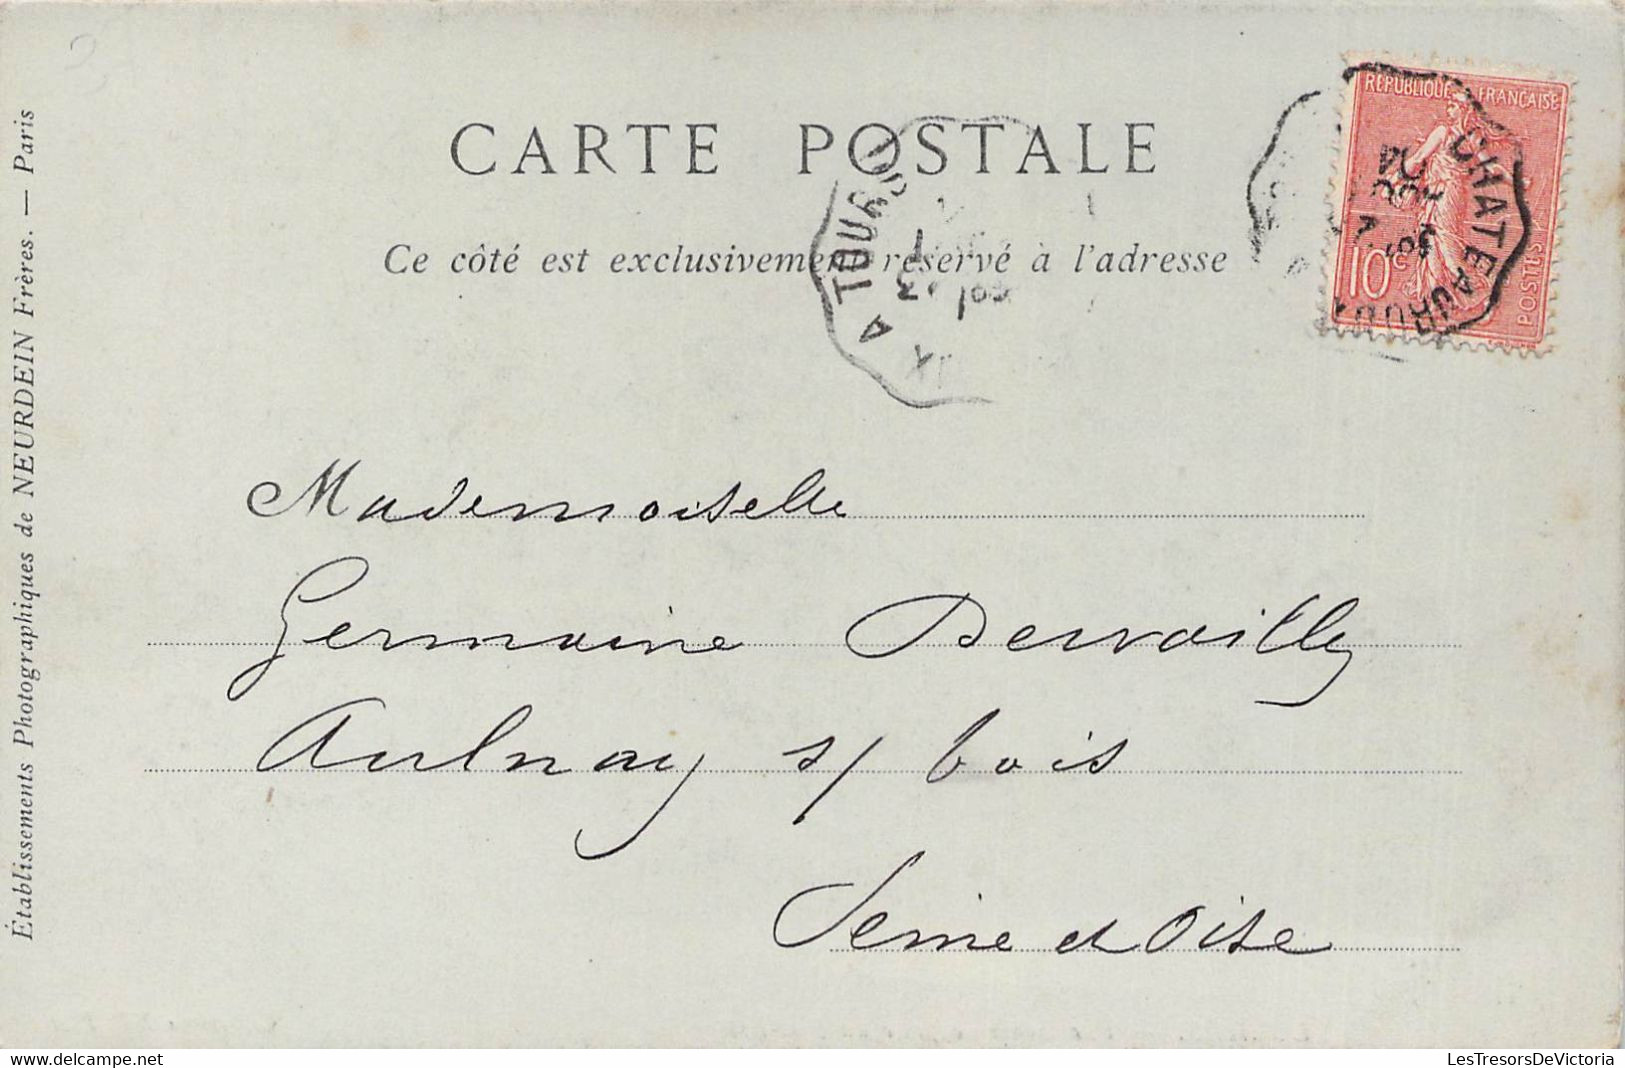 CARTE POSTALE
Ce côté est exclusivement réservé à l'adresse
RÉPUBLIQUE FRANÇAISE
10c
POSTES
CHATEAUROUX
A TOURS
Mademoiselle
Germaine Dervailly
Aulnay s/ bois
Seine et Oise
Établissements Photographiques de NEURDEIN Frères. — Paris
delcampe.net
LesTresorsDeVictoria